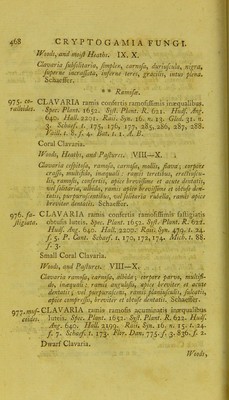 468 CRYPTOGAMIA FUNGI.
Woods, and moist Heaths. IX. X.
Clavaria subsolitaria, simplex, carnosa, duriuscula, nigra,
superne incrassata, inferne teres, gracilis, intus plena.
Schaeffer.
** Ramosæ.
975. co- CLAVARIA ramis confertis ramosissimis inæqualibus.
ralloides. Spec. Plant. 1652. Syst. Plant. R. 621. Hudf. Ang.
640. Hall. 2201. Raii. Syn. 16. n. 13. Gled. 31. n.
3. Schaef. t. 175, 176, 177, 285, 286, 287, 288.
Vaill. t. 8. f. 4. Batt. t. 1. A. B.
Coral Clavaria.
Woods, Heaths, and Pastures. VIII—X.
Clavaria cespitosa, ramosa, carnosa, mollis, flava; corpore
crasso, multifido, inæquali; ramis teretibus, rectiuscu-
lis, ramosis, confertis, apice brevissime et acute dentatis,
vel solitaria, albida, ramis apice brevissime et obtuse den-
tatis, purpurascentibus, vel solitaria rubella, ramis apice
breviter denticis. Schaeffer.
976. fa- CLAVARIA ramis confertis ramosissimis fastigiatis
stigiata. obtusis luteis. Spec. Plant. 1652. Syst. Plant. R. 622.
Hudf. Ang. 640. Hall. 2200. Raii. Syn. 479. t. 24.
f. 5. P. Cant. Schaef. t. 170, 172, 174. Mich. t. 88.
f. 3.
Small Coral Clavaria.
Woods, and Pastures. VIII—X.
Clavaria ramosa, carnosa, albida; corpore parvo, multifi-
do, inæquali; ramis angulosis, apice breviter et acute
dentatis; vel purpurascens, ramis planiusculis, sulcatis,
apice compresso, breviter et obtuse dentatis. Schaeffer.
977. mus- CLAVARIA ramis ramosis acuminatis inæqualibus
coides. luteis. Spec. Plant. 1652. Syst. Plant. R. 622. Hudf.
Ang. 640. Hall. 2199. Raii. Syn. 16. n. 15. t. 24.
f. 7. Schaef. t. 173. Flor. Dan. 775. f. 3. 836. f. 2.
Dwarf Clavaria.
Woods,